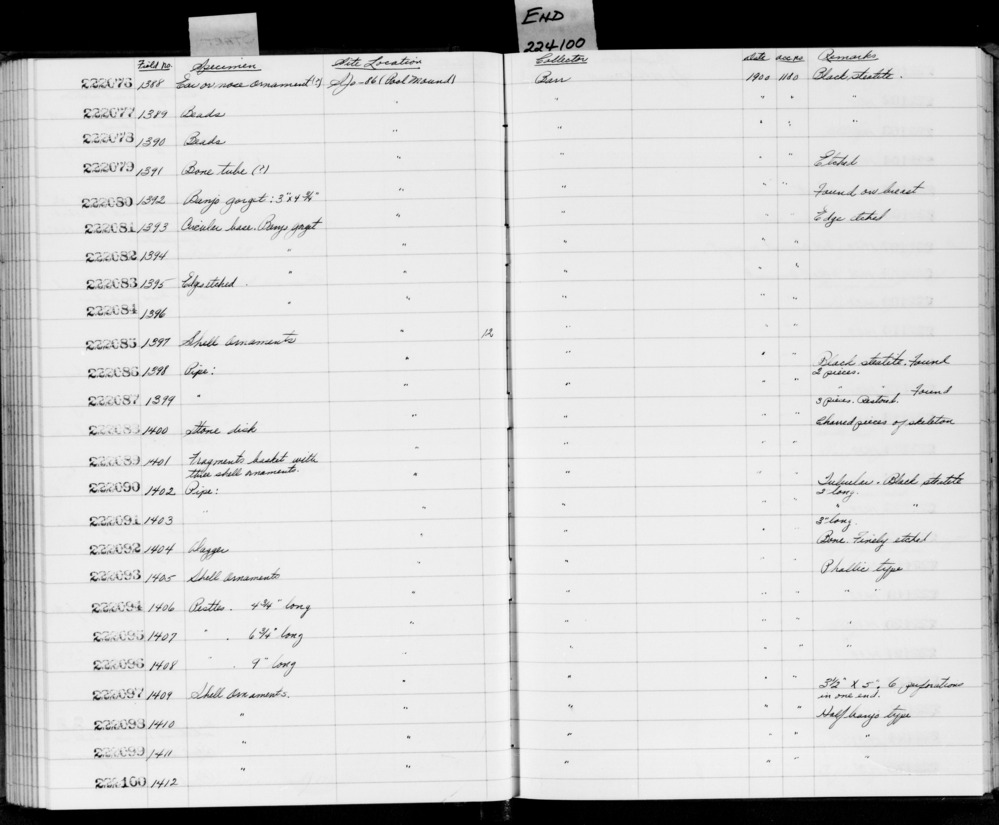 END
224100
Field No. Specimen Site Location Collector Date acc no Remarks
222076 1388 Ear or nose ornament (?) SJo-86 (Pool Mound) Barr 1900 1180 Black steatite.
222077 1389 Beads " " " " "
222078 1390 Beads " " " "
222079 1391 Bone tube (?) " " " " Etched
222080 1392 Banjo gorget: 3" x 4 3/4" " " " " Found on breast
222081 1393 Circular base. Banjo gorget " " Edge etched
222082 1394 " " " " "
222083 1395 Edge etched. " " " "
222084 1396 " " " " "
222085 1397 Shell ornaments " 12 " " "
222086 1398 Pipe: " " " " Black steatite. Found
2 pieces.
222087 1399 " " " " " " " Found
3 pieces. Restored.
222088 1400 Stone disk " " " " Charred pieces of skeleton
222089 1401 Fragments basket with
three shell ornaments. " " " "
222090 1402 Pipe: " " " Tubular. Black steatite
2" long.
222091 1403 " " " " " " "
3" long.
222092 1404 Dagger " " " Bone. Finely etched
222093 1405 Shell ornaments " " " " Phallic type
222094 1406 Pestles. 4 3/4" long " " " " "
222095 1407 " . 6 3/4" long " " " " "
222096 1408 " . 9" long " " " " "
222097 1409 Shell ornaments. " " " " 3 1/2" x 5", 6 perforations
in one end.
222098 1410 " " " " " Half banjo type
222099 1411 " " " " " "
222100 1412 " " " " " "